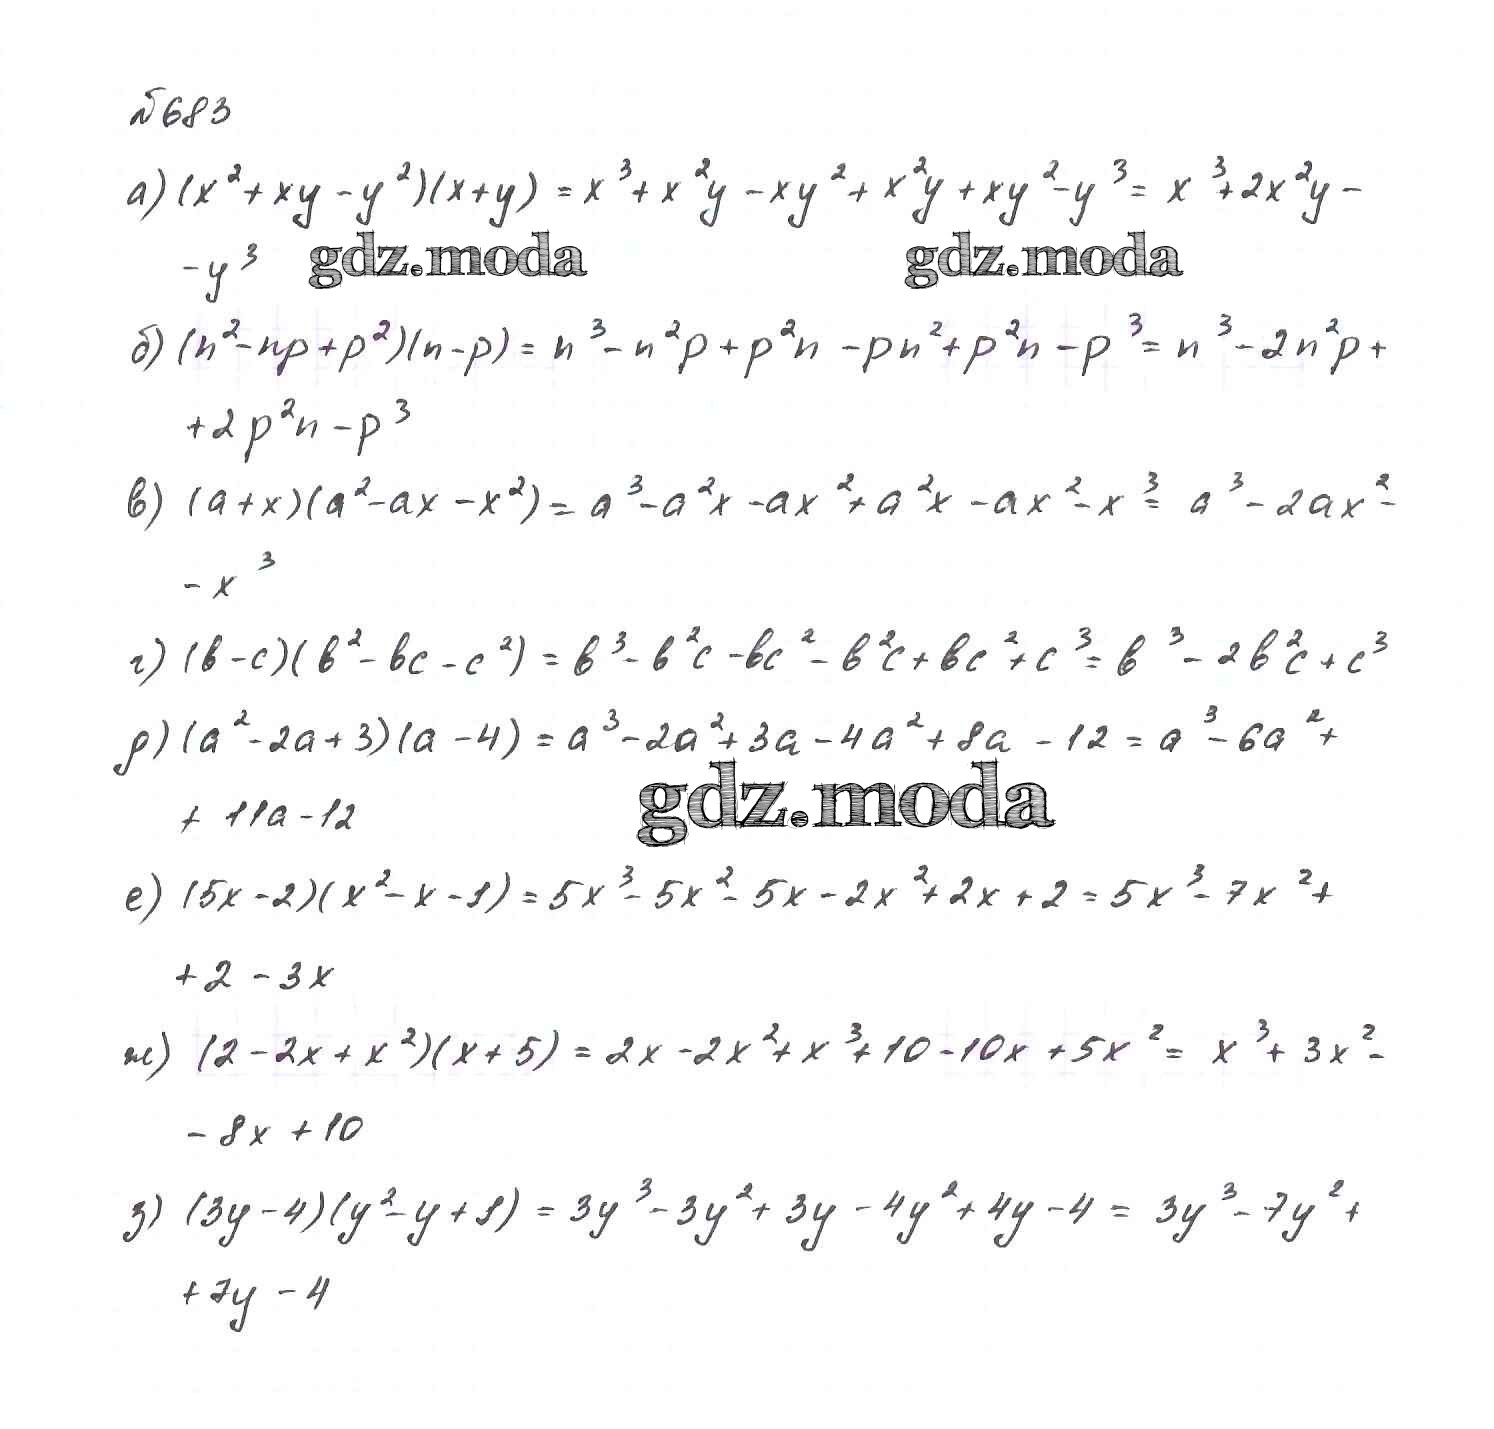 №683
а) (x²+xy-y²)(x+y) = x³+x²y-xy²+x²y+xy²-y³= x³+2x²y-
-y³ gdz.moda gdz.moda
б) (n²-np+p²)(n-p) = n³-n²p+p²n-pn²+p²n-p³= n³-2n²p+
+2p²n-p³
в) (a+x)(a²-ax-x²) = a³-a²x-ax²+a²x-ax²-x³= a³-2ax²-
-x³
г) (b-c)(b²-bc-c²) = b³-b²c-bc²-b²c+bc²+c³= b³-2b²c+c³
д) (a²-2a+3)(a-4) = a³-2a²+3a-4a²+8a-12 = a³-6a²+
+11a-12 gdz.moda
е) (5x-2)(x²-x-1) = 5x³-5x²-5x-2x²+2x+2 = 5x³-7x²+
+2-3x
ж) (2-2x+x²)(x+5) = 2x-2x²+x³+10-10x+5x²= x³+3x²-
-8x+10
з) (3y-4)(y²-y+1) = 3y³-3y²+3y-4y²+4y-4 = 3y³-7y²+
+7y-4